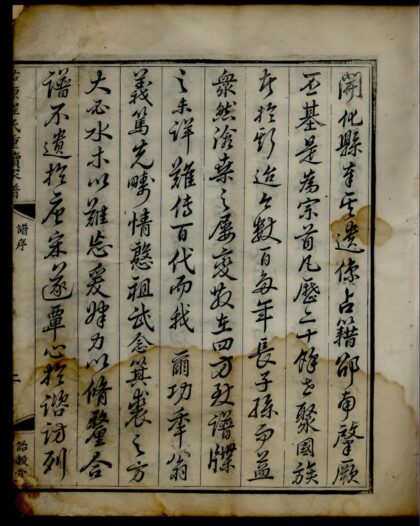 開化縣奉其遺像占籍邵南肇厥
丕基是為宗首凡歷二十餘世聚國族
於斯迨今數百每年長子孫而益
衆然滄桑之屢變散在四方致譜牒
之未詳難傳百代而我 爾功季翁
義篤先疇情慇祖武念箕裘之方
大 水木以難忘爰 力以脩釐合
譜不遺於唐宋遂覃心於諮訪列
氏重 家譜
譜序
二
詒穀堂